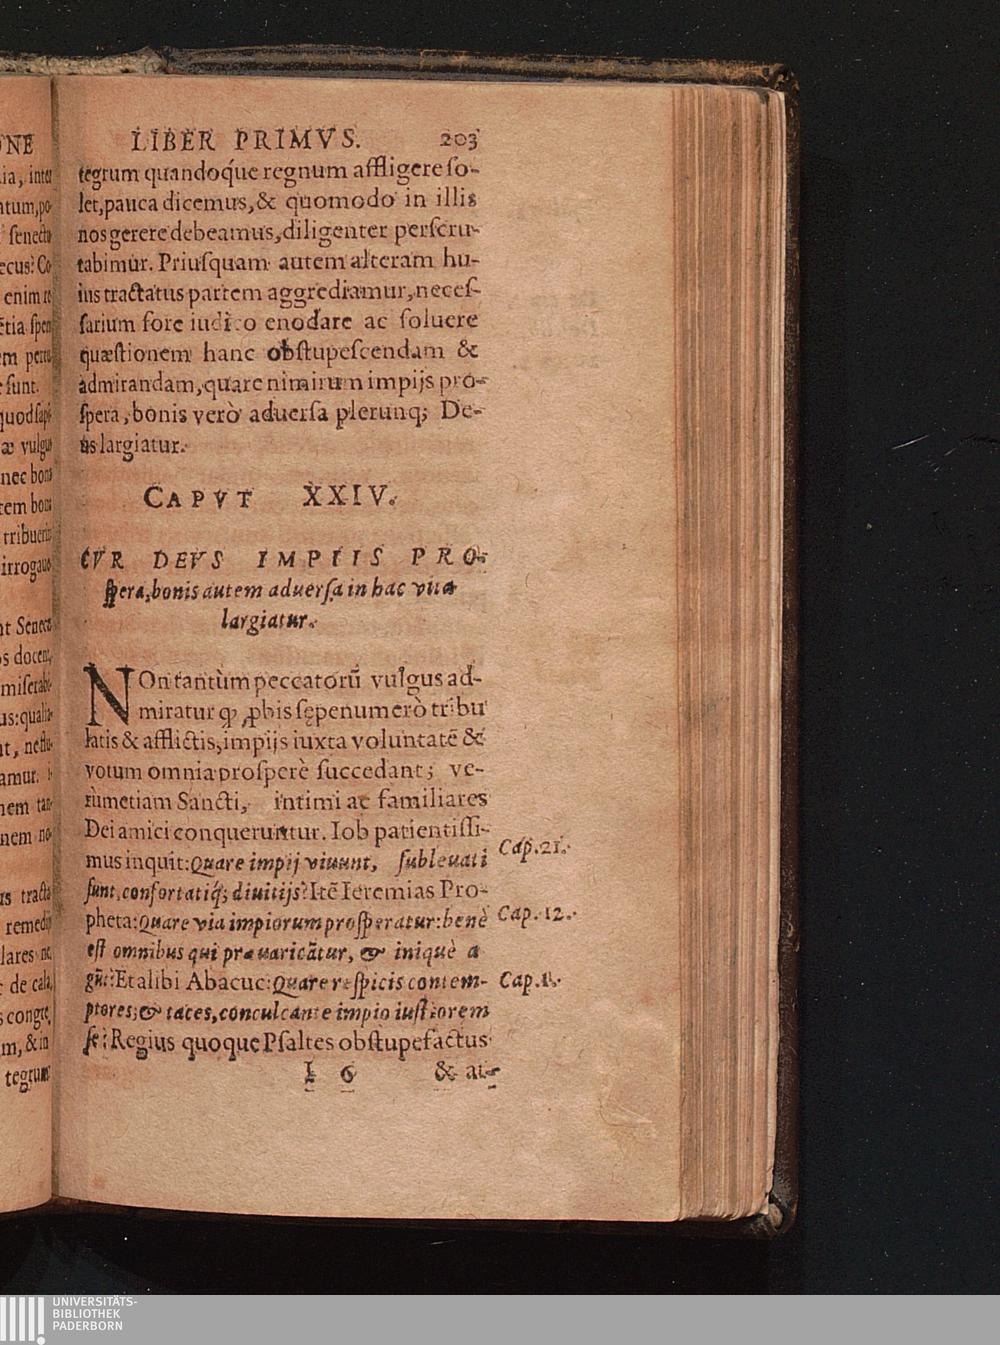 LIBER PRIMVS. 203
tegrum quandoq́ue regnum affligere ſo-
let, pauca dicemus, & quomodo in illis
nos gerere debeamus, diligenter perſcru-
tabimur. Priuſquam autem alteram hu-
ius tractatus partem aggrediamur, neceſ-
ſarium fore iudico enodare ac ſoluere
quæſtionem hanc obſtupeſcendam &
admirandam, quare nimirum impijs pro-
ſpera, bonis verò aduerſa plerunq; De-
us largiatur.
CAPVT XXIV.
CVR DEVS IMPIIS PRO-
ſpera, bonis autem aduerſa in hac vita
largiatur.
NOn tantùm peccatorũ vulgus ad-
miratur ꝙ ꝓbis ſępenumerò tribu
latis & afflictis, impijs iuxta voluntatẽ &
votum omnia proſperè ſuccedant; ve-
rùm etiam Sancti, intimi ac familiares
Dei amici conqueruntur. Iob patientiſſi-
mus inquit: Quare impij viuunt, ſubleuati
ſunt, confortatiq́; diuitijs? Itẽ Ieremias Pro-
pheta: Quare via impiorum proſperatur: benè
eſt omnibus qui præuaricãtur, & iniquè a
gũt? Et alibi Abacuc: Quare reſpicis contem-
ptores; & taces, conculcante impio iuſtiorem
ſe? Regius quoque Pſaltes obſtupefactus
I 6 & at-
Cap. 21.
Cap. 12.
Cap. 1.
ONE
ia, inter
ſenectu
ecus? Co
enim re
ẽtia ſpen
ſunt.
quod ſapi
æ vulgus
nec bona
tem bona
irrogauo
nt Seneca
os docent,
us: qualia
amur.
nem tan
nem no
remedijs
de cala
m, & in
tegrum
UNIVERSITÄTS-
BIBLIOTHEK
PADERBORN